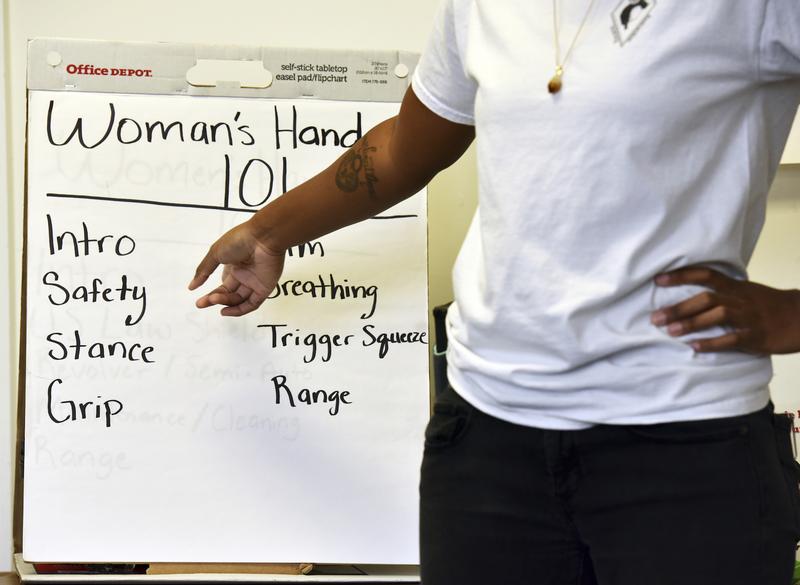 Office DEPOT.
self-stick tabletop
easel pad/flipchart
Woman's Hand
101
Intro
Safety
Breathing
Stance
Trigger Squeeze
Grip
Range